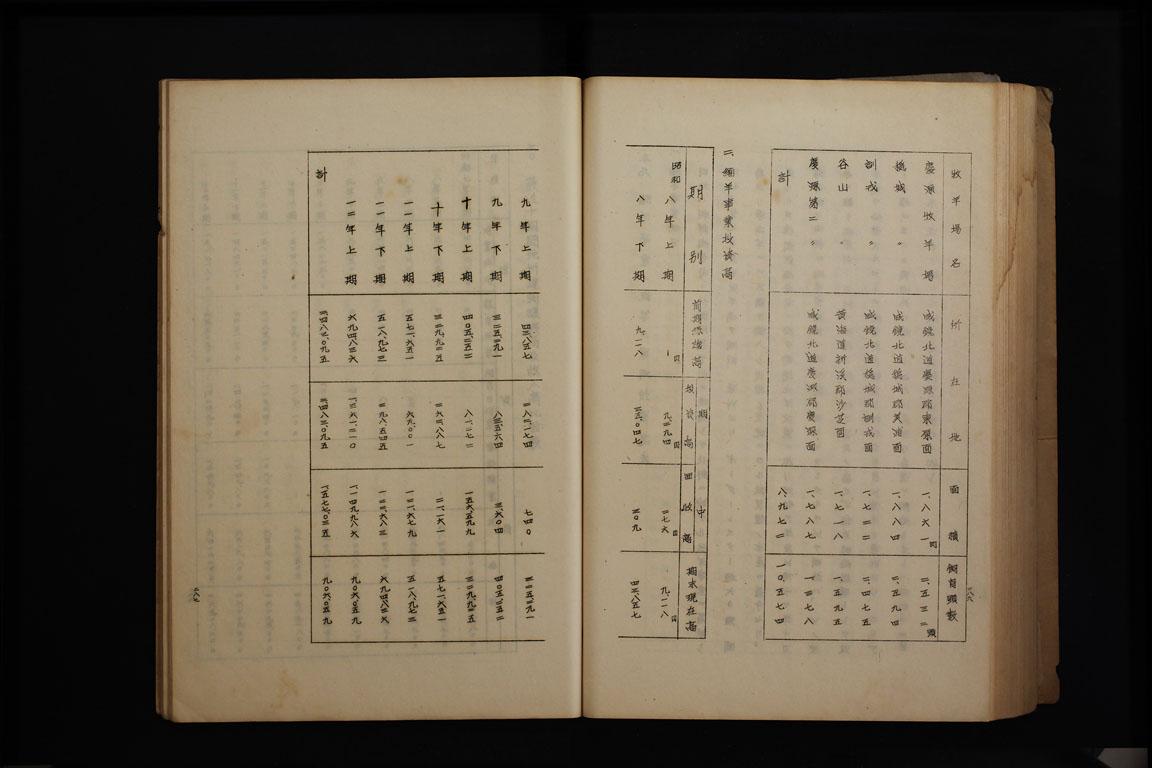 牧羊場名 所在地 面積 飼育頭数
慶源牧羊場 咸鏡北道慶源郡東原面 一、八六一町 二、五三二頭
穏城〃 咸鏡北道穏城郡美浦面 一、八八四 二、五九四
訓戎〃 咸鏡北道穏城郡訓戎面 一、七二二 二、四七五
谷山〃 黄海道新渓郡沙芝面 一、七一八 一、五九五
慶源第二〃 咸鏡北道慶源郡慶源面 一、七八七 一、三七八
計 八、九七二 一〇、五七四
二、緬羊事業投資高
期別 前期繰越高 期中 投資高 回収高 期末現在高
昭和八年上期 ー円 九、三九四円 二七六円 九、一一八円
八年下期 九、一一八 三五、〇四七 三〇九 四三、八五七
九年上期 四三、八五七 二八二、一七四 七四〇 三二五、二九一
九年下期 三二五、二九一 八三、五六四 三、六〇四 四〇五、二五二
十年上期 四〇五、二五二 八一、二七二 一五六、五九九 三二九、九二五
十年下期 三二九、九二五 二六三、八八七 二二、一六一 五七一、六五一
一一年上期 五七一、六五一 六九、〇〇一 一二一、六七九 五一八、九七三
一一年下期 五一八、九七三 二九八、五四五 一二二、六八二 六九四、八三六
一二年上期 六九四、八三六 一、三六一、二一〇 一、一四九、九八六 九〇六、〇五九
計 二、四八三、〇九五 一、五七七、〇三五 九〇六、〇五九
二八六
二八七